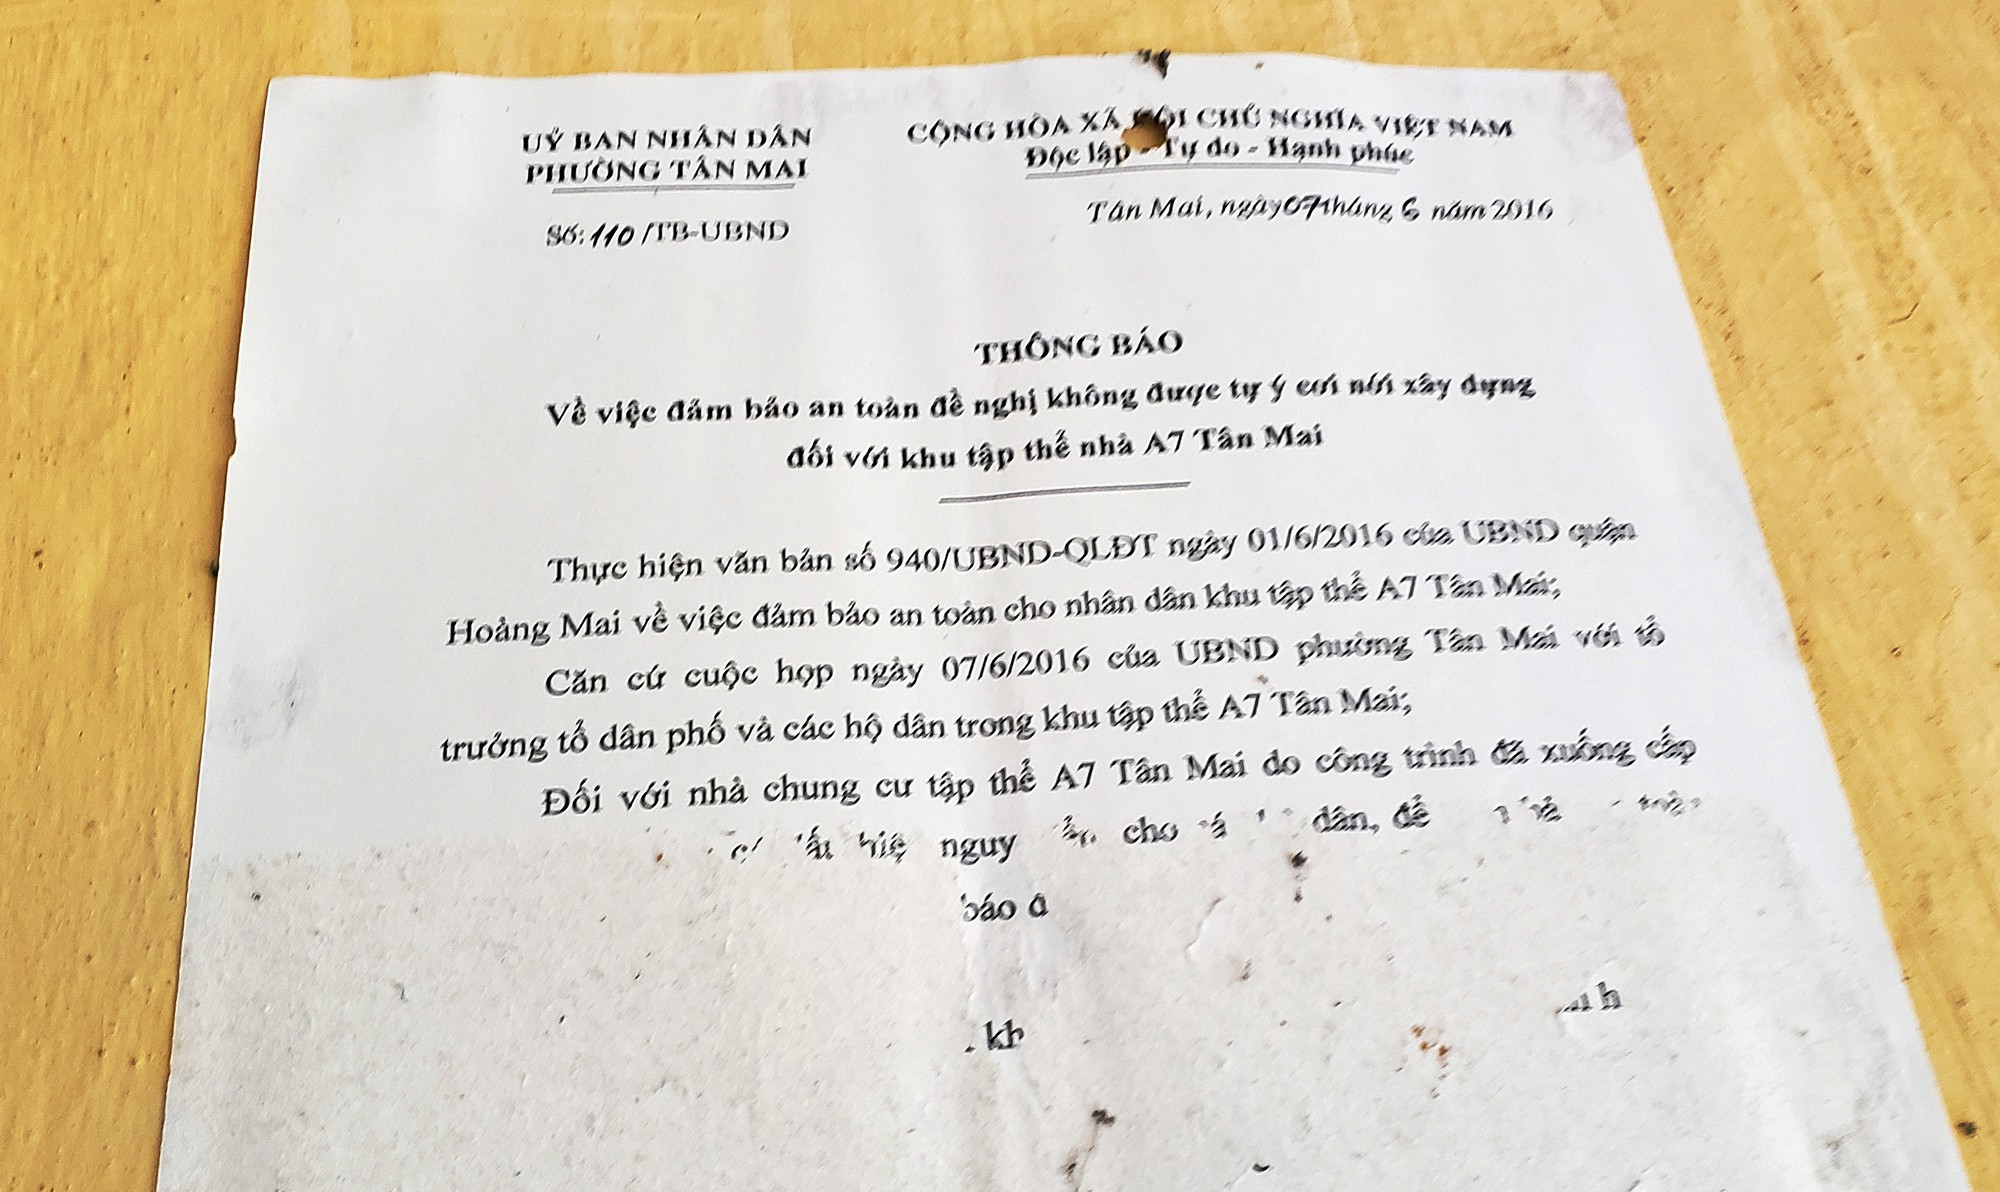 UỶ BAN NHÂN DÂN
PHƯỜNG TÂN MAI
Số: 110/TB-UBND
CỘNG HÒA XÃ HỘI CHỦ NGHĨA VIỆT NAM
Độc lập - Tự do - Hạnh phúc
Tân Mai, ngày 07 tháng 6 năm 2016
THÔNG BÁO
Về việc đảm bảo an toàn đề nghị không được tự ý cơi nới xây dựng
đối với khu tập thể nhà A7 Tân Mai
Thực hiện văn bản số 940/UBND-QLĐT ngày 01/6/2016 của UBND quận
Hoàng Mai về việc đảm bảo an toàn cho nhân dân khu tập thể A7 Tân Mai;
Căn cứ cuộc họp ngày 07/6/2016 của UBND phường Tân Mai với tổ
trưởng tổ dân phố và các hộ dân trong khu tập thể A7 Tân Mai;
Đối với nhà chung cư tập thể A7 Tân Mai do công trình đã xuống cấp
nguy cho dân, để
báo